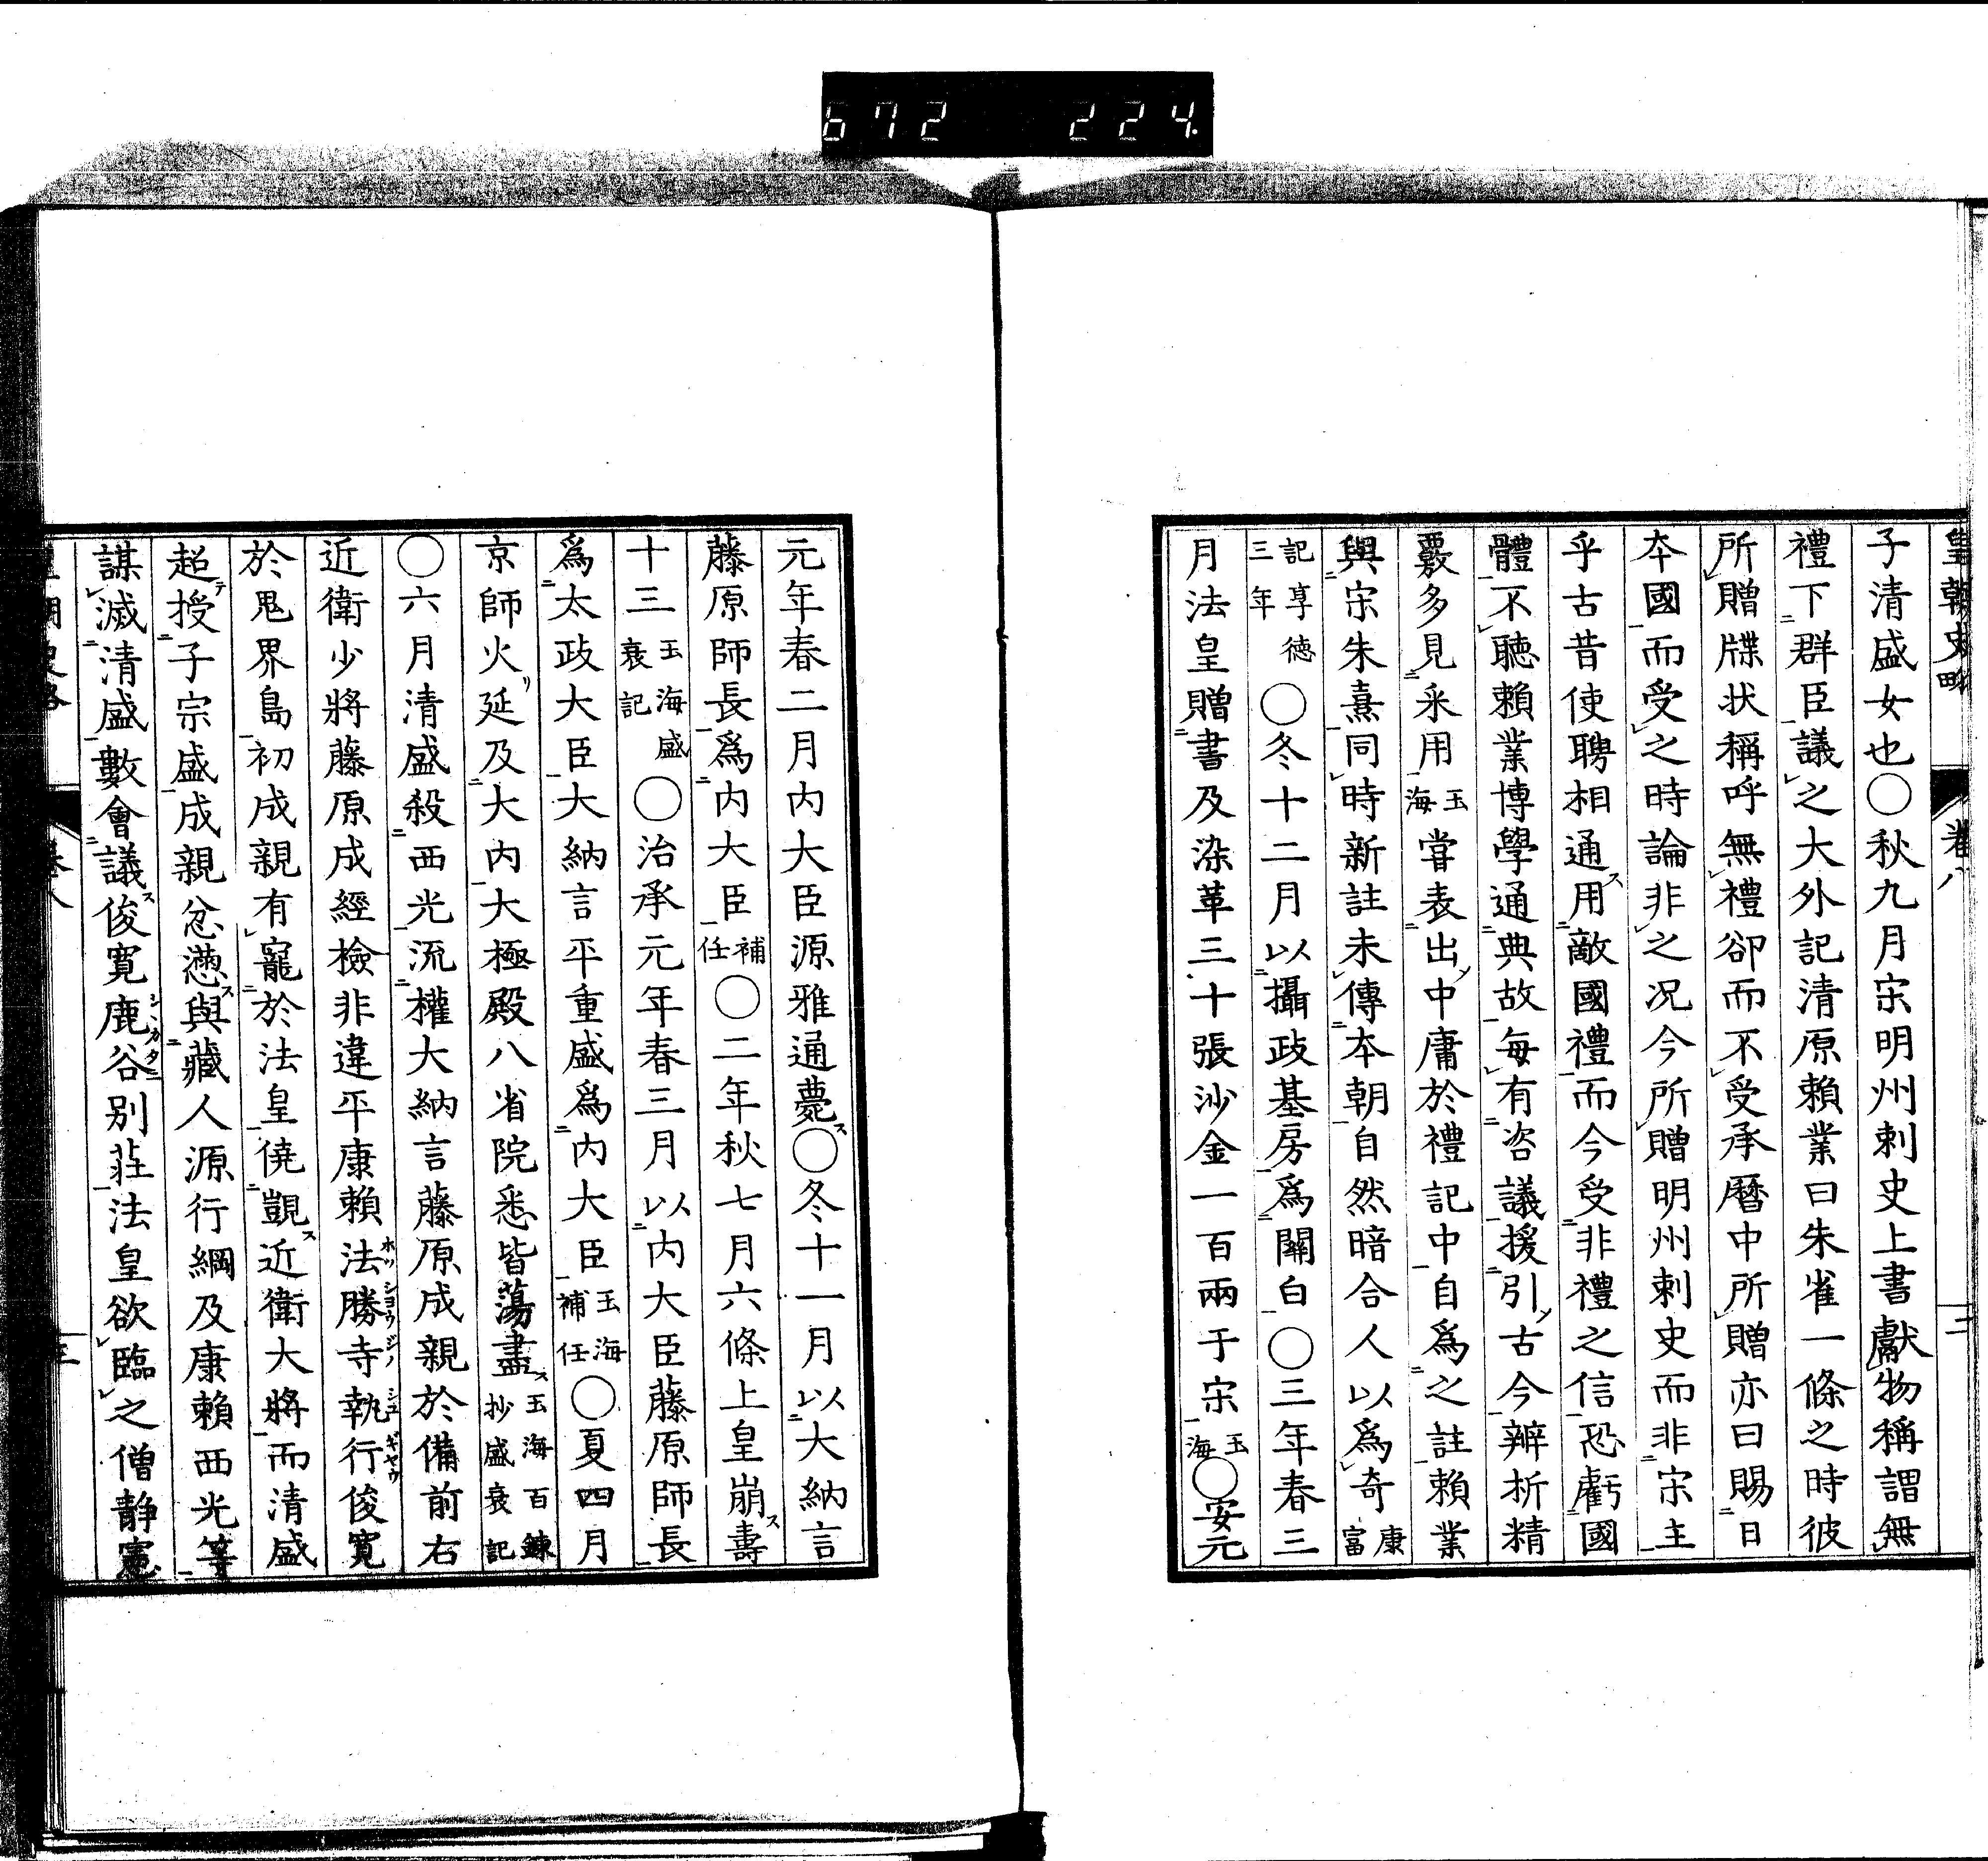 672 224.
皇朝史略 卷八 二
子清盛女也〇秋九月宋明州刺史上書獻物稱謂無
禮下群臣議之大外記清原賴業曰朱雀一條之時彼
所贈牒状稱呼無禮卻而不受承曆中所贈亦曰賜日
夲國而受之時論非之况今所贈明州刺史而非宋主
乎古昔使聘相通用敵國禮而今受非禮之信恐虧國
體不聽賴業博學通典故每有咨議援引古今辨折精
覈多見采用玉海嘗表出中庸於禮記中自爲之註賴業
與宋朱熹同時新註未傳夲朝自然暗合人以爲奇康富
記享德三年〇冬十二月以攝政基房爲關白〇三年春三
月法皇贈書及染革三十張沙金一百兩于宋玉海〇安元
元年春二月内大臣源雅通薨〇冬十一月以大納言
藤原師長爲内大臣補任〇二年秋七月六條上皇崩壽
十三玉海盛衰記〇治承元年春三月以内大臣藤原師長
爲太政大臣大納言平重盛爲内大臣玉海補任〇夏四月
京師火延及大内大極殿八省院悉皆蕩盡玉海百鍊抄盛衰記
〇六月清盛殺西光流權大納言藤原成親於備前右
近衛少將藤原成經檢非違平康賴法勝寺執行俊寛
於鬼界島初成親有寵於法皇僥覬近衛大將而清盛
超授子宗盛成親忿懣與藏人源行綱及康賴西光等
謀滅清盛數會議俊寛鹿谷別莊法皇欲臨之僧静憲